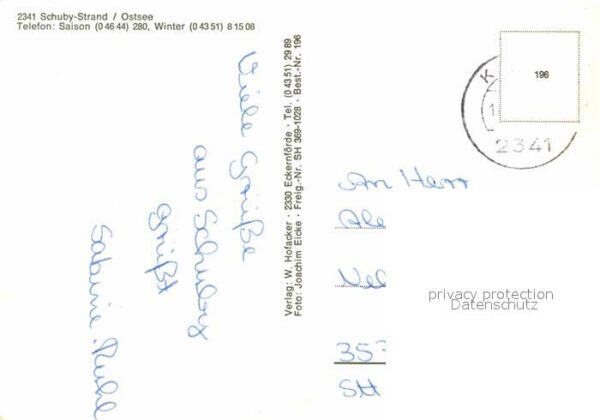 2341 Schuby-Strand / Ostsee
Telefon: Saison (0 46 44) 280, Winter (0 43 51) 8 15 08
Viele Grüße
aus Schuby
grüßt
Sabine
Verlag: W. Hofacker · 2330 Eckernförde · Tel. (0 43 51) 29 89
Foto: Joachim Eicke · Freig.-Nr. SH 369-1028 · Best.-Nr. 196
196
K
2341
An Herr
Ale
Vel
privacy protection
Datenschutz
357
SH